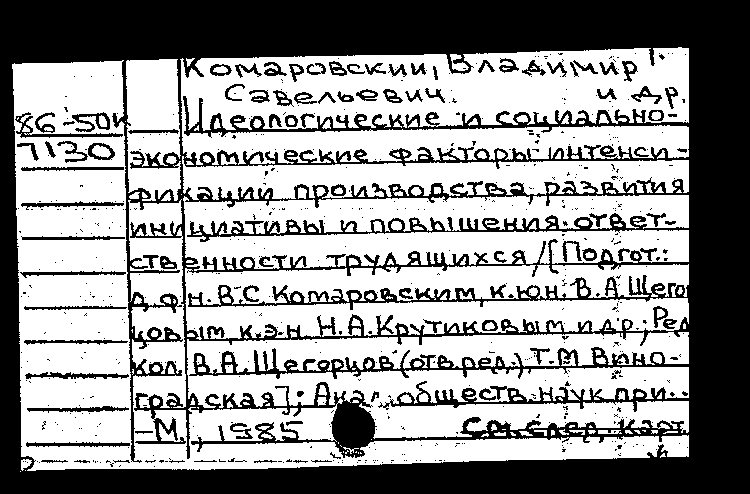 Комаровский, Владимир
Савельевич. и др.
86-50к
Идеологические и социально-
7130
экономические факторы интенси-
фикации производства, развития
инициативы и повышения ответ-
ственности трудящихся / [Подгот.:
д.ф.н. В.С. Комаровским, к.ю.н. В.А. Щегор
цовым, к.э.н. Н.А. Крутиковым и др.; Ред
кол. В.А. Щегорцов (отв. ред.), Т.М. Вино-
градская]; Акад. обществ. наук при..
-М., 1985 См. след. карт.